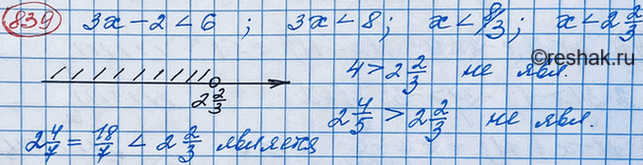 839 3x - 2 < 6 ; 3x < 8 ; x < 8/3 ; x < 2 2/3
4 > 2 2/3 не явл.
2 2/3
2 4/5 > 2 2/3 не явл.
2 4/7 = 18/7 < 2 2/3 является
©reshak.ru